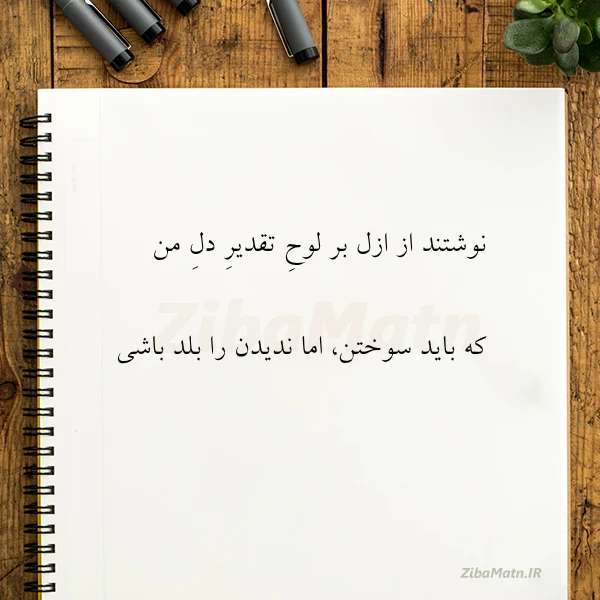 نوشتند از ازل بر لوحِ تقدیرِ دلِ من
که باید سوختن، اما ندیدن را بلد باشی
ZibaMatn
ZibaMatn.IR